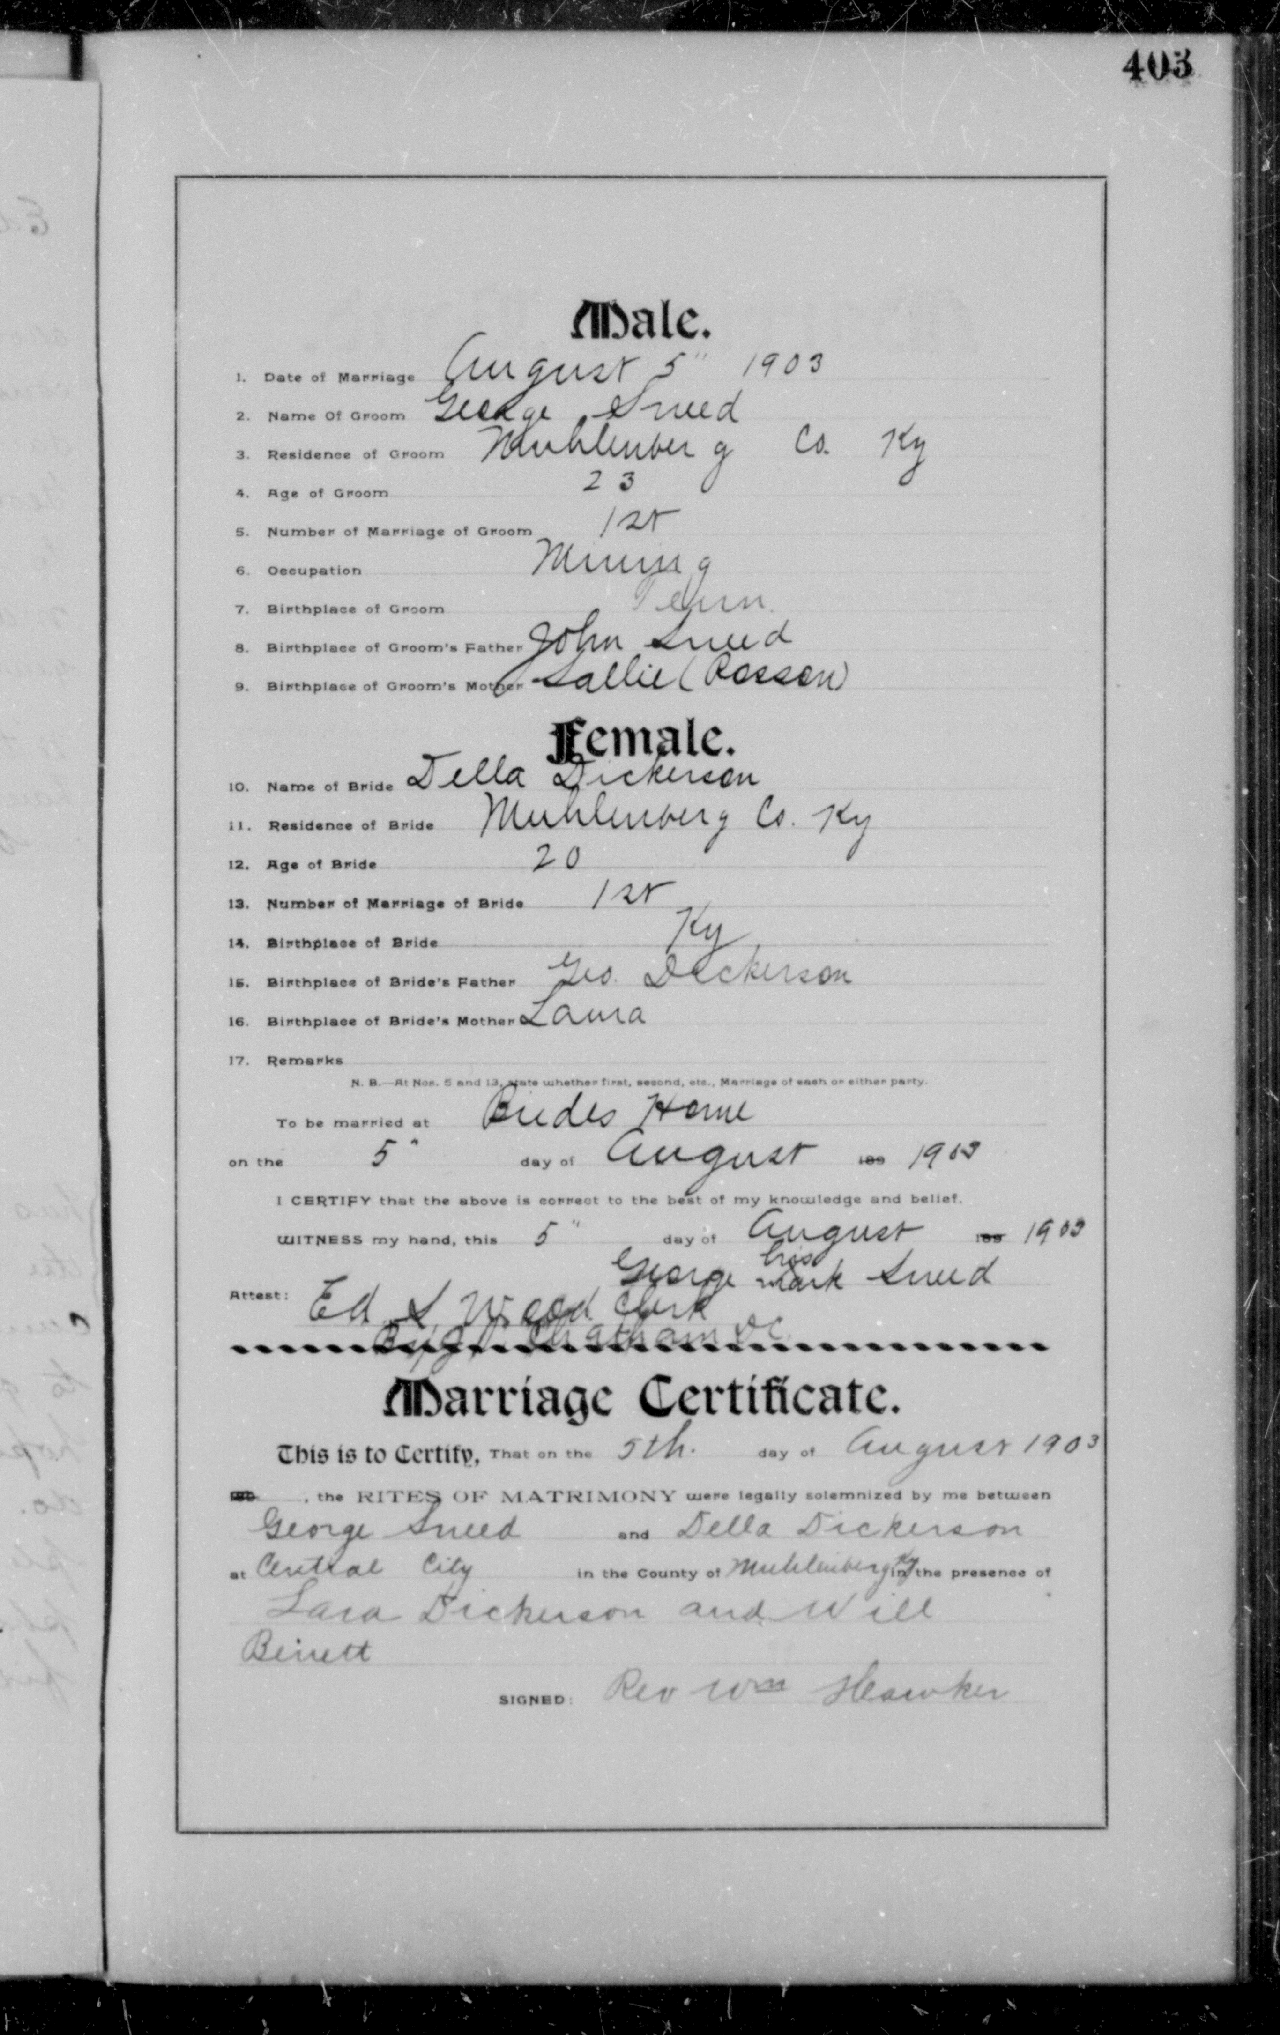 403
Male.
1. Date of Marriage August 5" 1903
2. Name Of Groom George Sneed
3. Residence of Groom Muhlenberg Co. Ky
4. Age of Groom 23
5. Number of Marriage of Groom 1st
6. Occupation Mining
7. Birthplace of Groom Tenn.
8. Birthplace of Groom's Father John Sneed
9. Birthplace of Groom's Mother Sallie (Rosson)
Female.
10. Name of Bride Della Dickerson
11. Residence of Bride Muhlenberg Co. Ky
12. Age of Bride 20
13. Number of Marriage of Bride 1st
14. Birthplace of Bride Ky
15. Birthplace of Bride's Father Geo. Dickerson
16. Birthplace of Bride's Mother Laura
17. Remarks
N. B.—At Nos. 5 and 13, state whether first, second, etc., Marriage of each or either party.
To be married at Brides Home
on the 5" day of August 189 1903
I CERTIFY that the above is correct to the best of my knowledge and belief.
WITNESS my hand, this 5" day of August 189 1903
George his mark Sneed
Attest: Ed S. Wood Clerk
By Chatham DC
Marriage Certificate.
This is to Certify, That on the 5th. day of August 1903
189 , the RITES OF MATRIMONY were legally solemnized by me between
George Sneed and Della Dickerson
at Central City in the County of Muhlenberg Ky in the presence of
Lara Dickerson and Will
Benett
SIGNED: Rev Wm Hawker